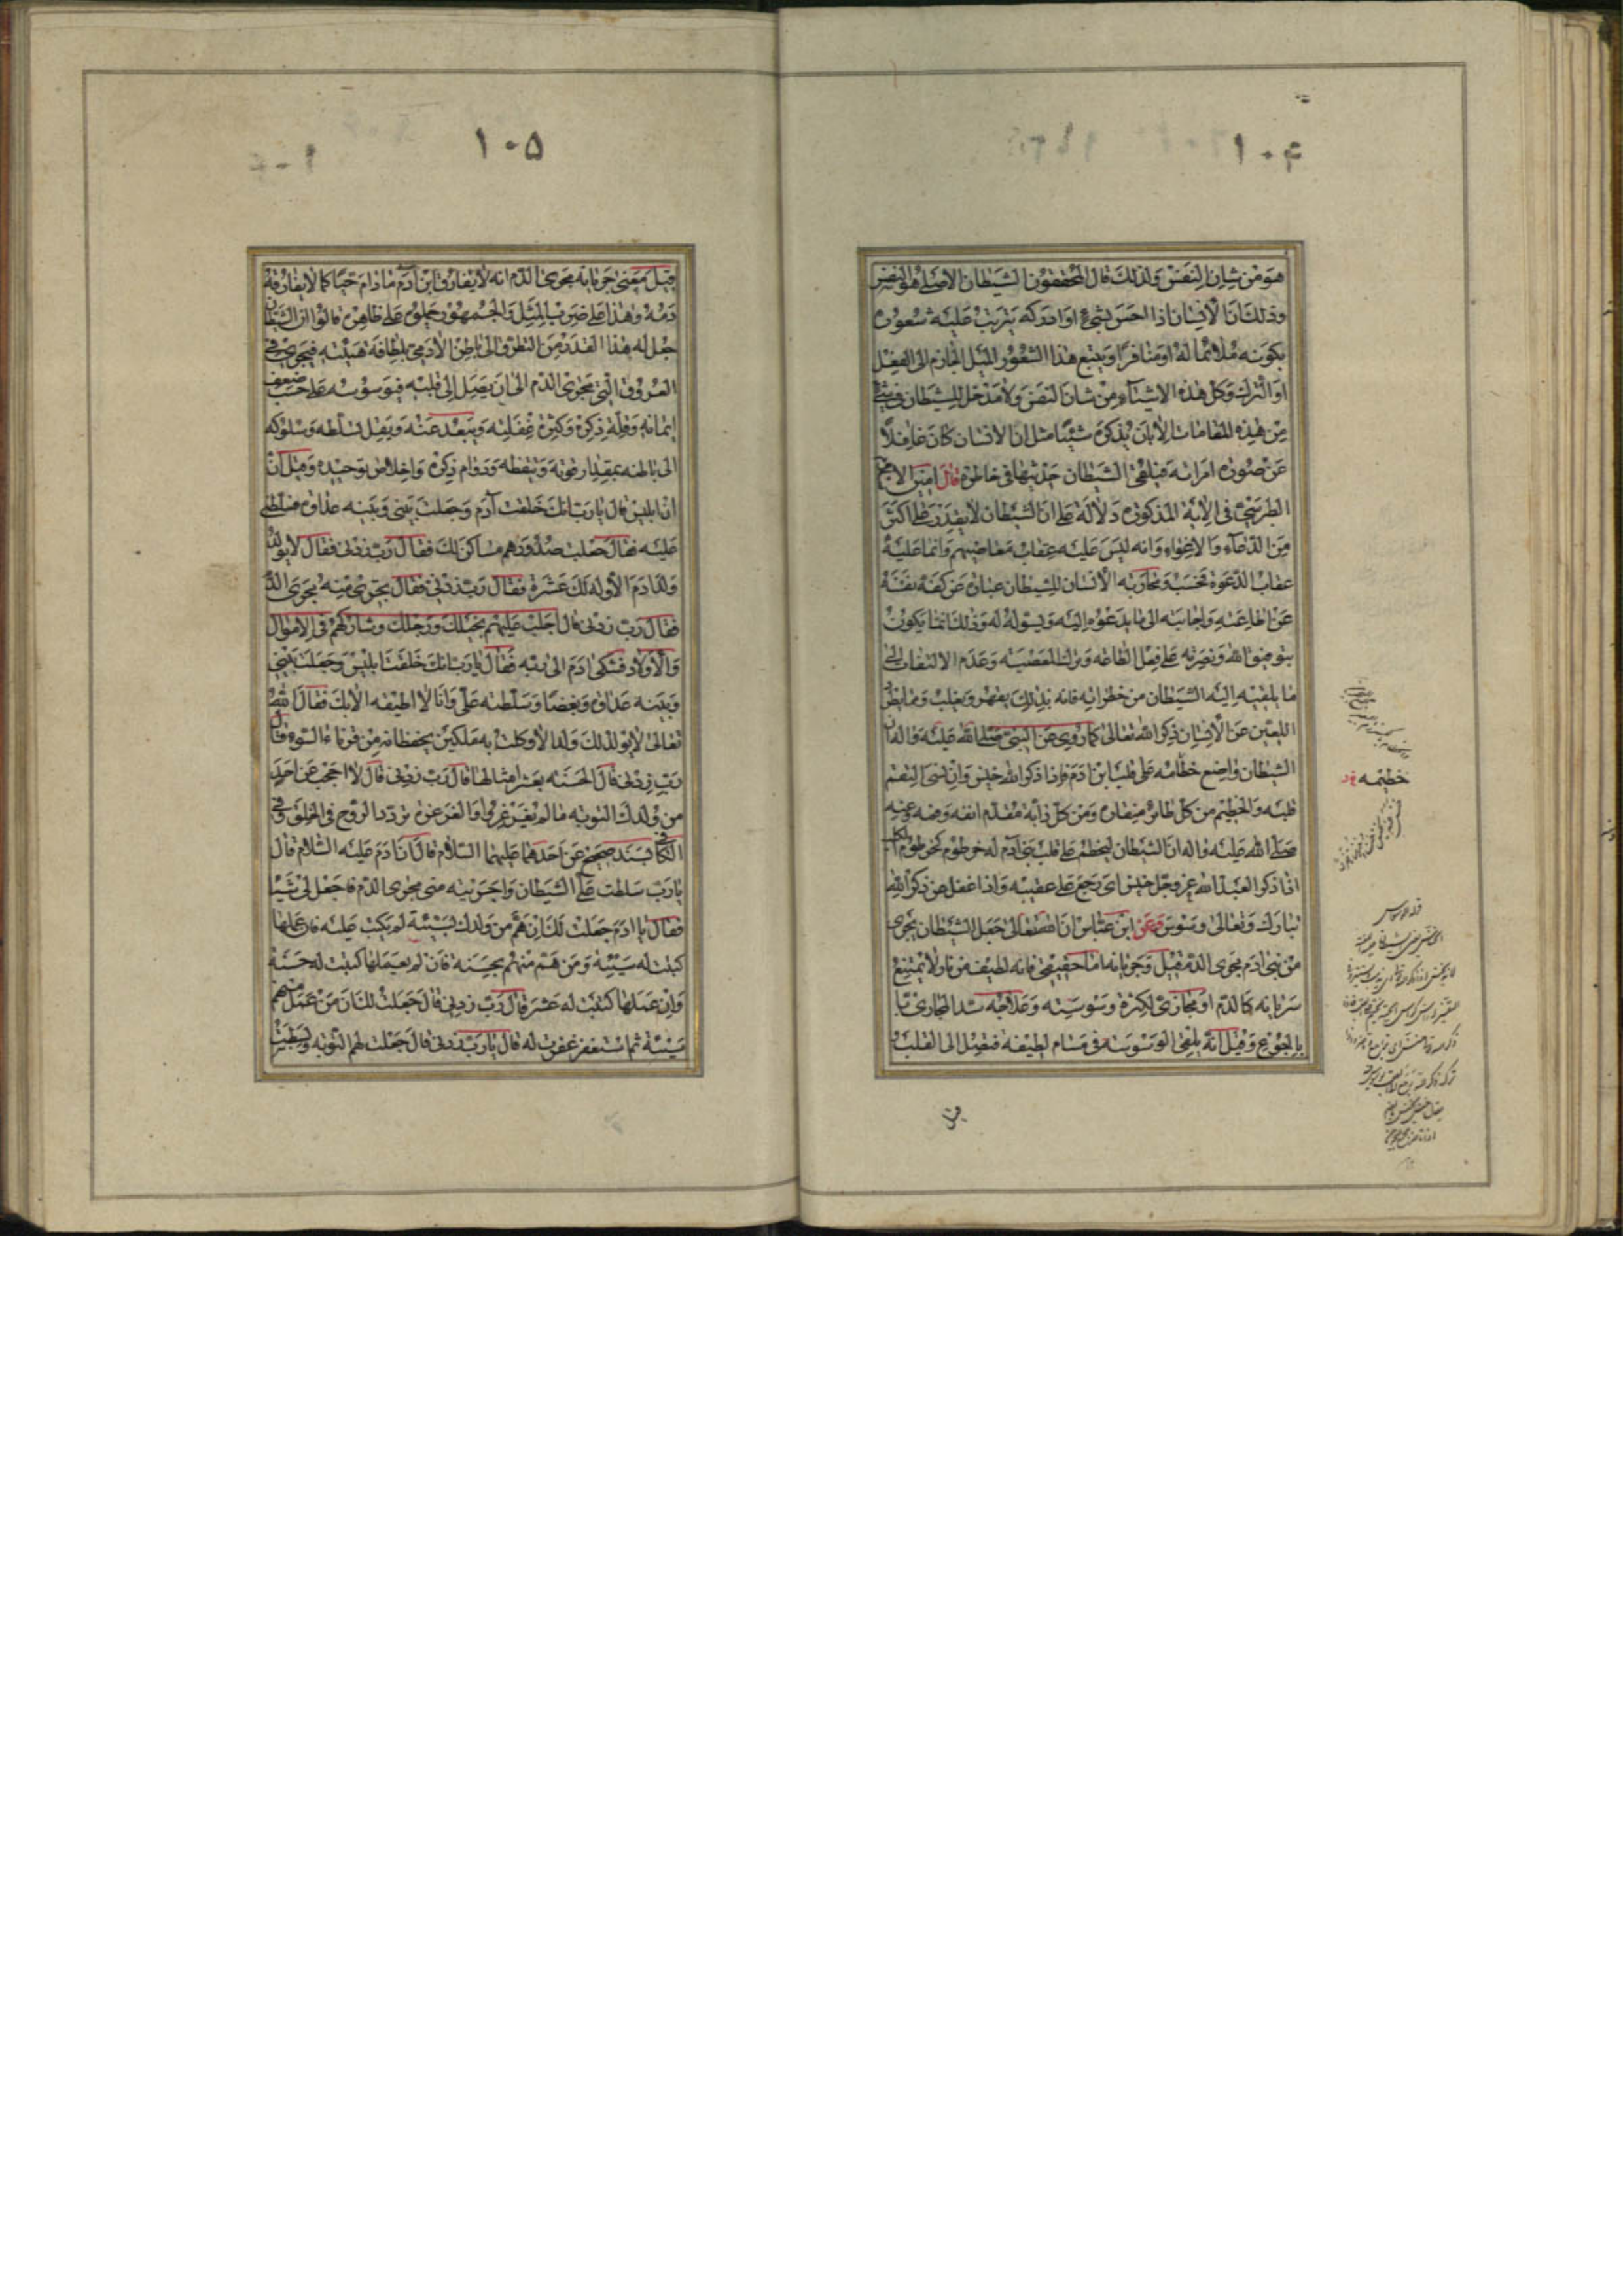 ۱۰۴
هو من شان النفس ولذلك قال المحققون الشيطان الاصلي هو النفس
وذلك ان الانسان اذا احس بشيء او ادركه يترتب عليه شعوره
بكونه ملائما له او منافرا ويتبع هذا الشعور الميل الجازم الى الفعل
او الترك وكل هذه الاشياء من شان النفس ولا مدخل للشيطان في شيء
من هذه المقامات الا بان يذكره شيئا مثل ان الانسان كان غافلا
عن صورة امراة فيلقى الشيطان حديثها في خاطره قال امين الاسلام
الطبرسي في الاية المذكورة دلالة على ان الشيطان لا يقدر على اكثر
من الدعاء والاغواء وانه ليس عليه عقاب معاصيهم وانما عليه
عقاب الدعوة فحسب ومحاربة الانسان للشيطان عبارة عن كفه نفسه
عن اطاعته واجابته الى ما يدعوه اليه ويسوله له وذلك انما يكون
بتوفيق الله ونصرته على فعل الطاعة وترك المعصية وعدم الالتفات الى
ما يلقيه اليه الشيطان من خطراته فانه بذلك يقهر ويغلب ومما يطرد
اللعين عن الانسان ذكر الله تعالى كما روى عن النبي صلى الله عليه واله ان
الشيطان واضع خطمه على قلب ابن ادم فاذا ذكر الله خنس وان نسى التقم
قلبه والخطم من كل طائر منقاره ومن كل دابة مقدم انفه وفمه وعنه
صلى الله عليه واله ان الشيطان ليخطم على قلب بني آدم له خرطوم كخرطوم الكلب
اذا ذكر العبد الله عز وجل خنس اى رجع على عقبيه واذا غفل عن ذكر الله
تبارك وتعالى وسوس وعن ابن عباس ان الله تعالى جعل الشيطان يجرى
من بني ادم مجرى الدم قيل وجريانه اما حقيقي فانه لطيف من نار لا يمتنع
سريانه كالدم او مجازي لكثرة وسوسته وعلاجه سد المجاري
بالجوع وقيل انه يلقى الوسوسة في مسام لطيفة فتصل الى القلب
خطمه
قوله وسوس
۱۰۵
قيل معنى جريانه مجرى الدم انه لا يفارق ابن آدم ما دام حيا كما لا يفارقه
دمه وهذا على ضرب المثل والجمهور حملوه على ظاهره قالوا ان الشيطان
جعل له هذا القدر من التطرق الى باطن الادمي بلطافة هيئته فيجرى في
العروق التي مجرى الدم الى ان يصل الى قلبه فيوسوسه على حسب ضعف
ايمانه وقلة ذكره وكثرة غفلته ويبعد عنه ويقل تسلطه وسلوكه
الى باطنه بمقدار قوته ويقظه ودوام ذكره واخلاص توحيده وقيل ان
ان ابليس قال يا رب انك خلقت آدم وجعلت بيني وبينه عداوة فسلطني
عليه فقال جعلت صدورهم مساكن لك فقال رب زدني فقال لا يولد
ولد لادم الا ولد لك عشرة فقال رب زدني فقال تجرى منه مجرى الدم
فقال رب زدني قال اجلب عليهم بخيلك ورجلك وشاركهم في الاموال
والاولاد فشكى ادم الى ربه فقال يا رب انك خلقت ابليس وجعلت بيني
وبينه عداوة وبغضا وسلطته على وانا لا اطيقه الا بك فقال الله
تعالى لا يولد لك ولد الا وكلت به ملكين يحفظانه من قرناء السوء قال
رب زدني قال الحسنة بعشر امثالها قال رب زدني قال لا احجب عن احد
من ولدك التوبة ما لم يغرغروا والغرغرة تردد الروح في الحلق وفي
الكافي بسند صحيح عن احدهما عليهما السلام قال ان ادم عليه السلام قال
يا رب سلطت على الشيطان واجريته منى مجرى الدم فاجعل لى شيئا
فقال يا ادم جعلت لك ان من هم من ولدك بسيئة لم يكتب عليه فان عملها
كتبت له سيئة ومن هم منهم بحسنة فان لم يعملها كتبت له حسنة
وان عملها كتبت له عشر قال رب زدني قال جعلت لك ان من عمل منهم
سيئة ثم استغفر غفرت له قال يا رب زدني قال جعلت لهم التوبة وبسطت